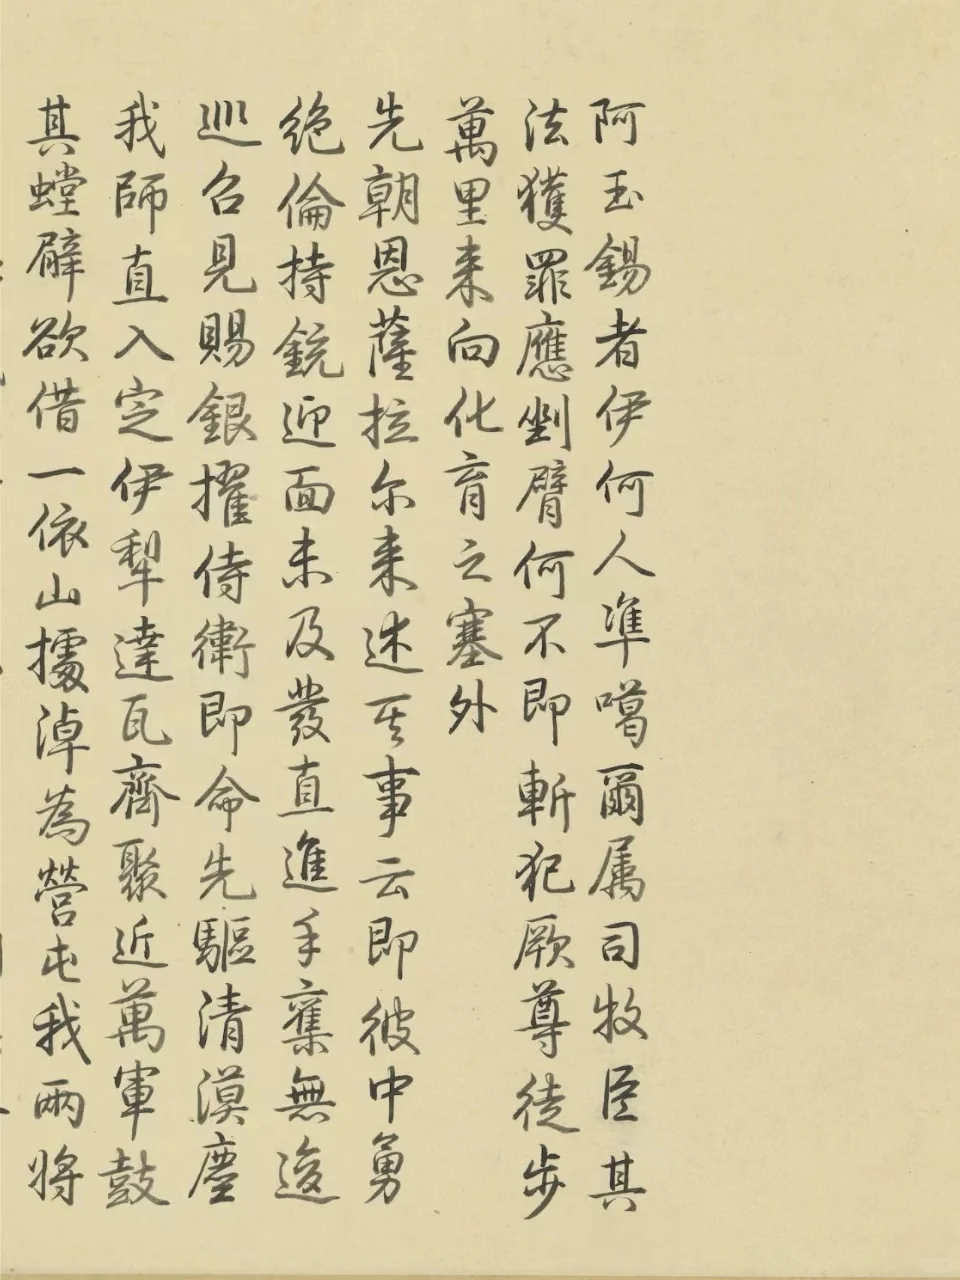 阿玉錫者伊何人準噶爾属司牧臣其
法獲罪應剉臂何不即斬犯厥尊徒步
萬里来向化育之塞外
先朝恩薩拉尔来述其事云即彼中勇
絶倫持銃迎面未及發直進手奪無逡
巡召見賜銀擢侍衛即命先驅清漠塵
我師直入定伊犁達瓦齊聚近萬軍鼓
其螳臂欲借一依山據淖為營屯我兩將